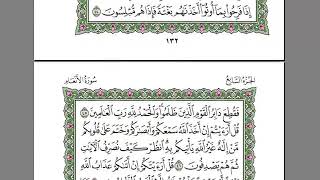 إِذَا فَرِحُوا۟ بِمَآ أُوتُوٓا۟ أَخَذْنَٰهُم بَغْتَةً فَإِذَا هُم مُّبْلِسُونَ ٤٤
١٣٢
الجزء السابع
سورة الأنعام
فَقُطِعَ دَابِرُ ٱلْقَوْمِ ٱلَّذِينَ ظَلَمُوا۟ وَٱلْحَمْدُ لِلَّهِ رَبِّ ٱلْعَٰلَمِينَ ٤٥
قُلْ أَرَءَيْتُمْ إِنْ أَخَذَ ٱللَّهُ سَمْعَكُمْ وَأَبْصَٰرَكُمْ وَخَتَمَ عَلَىٰ قُلُوبِكُم
مَّنْ إِلَٰهٌ غَيْرُ ٱللَّهِ يَأْتِيكُم بِهِ ٱنظُرْ كَيْفَ نُصَرِّفُ ٱلْءَايَٰتِ
ثُمَّ هُمْ يَصْدِفُونَ ٤٦ قُلْ أَرَءَيْتَكُمْ إِنْ أَتَىٰكُمْ عَذَابُ ٱللَّهِ